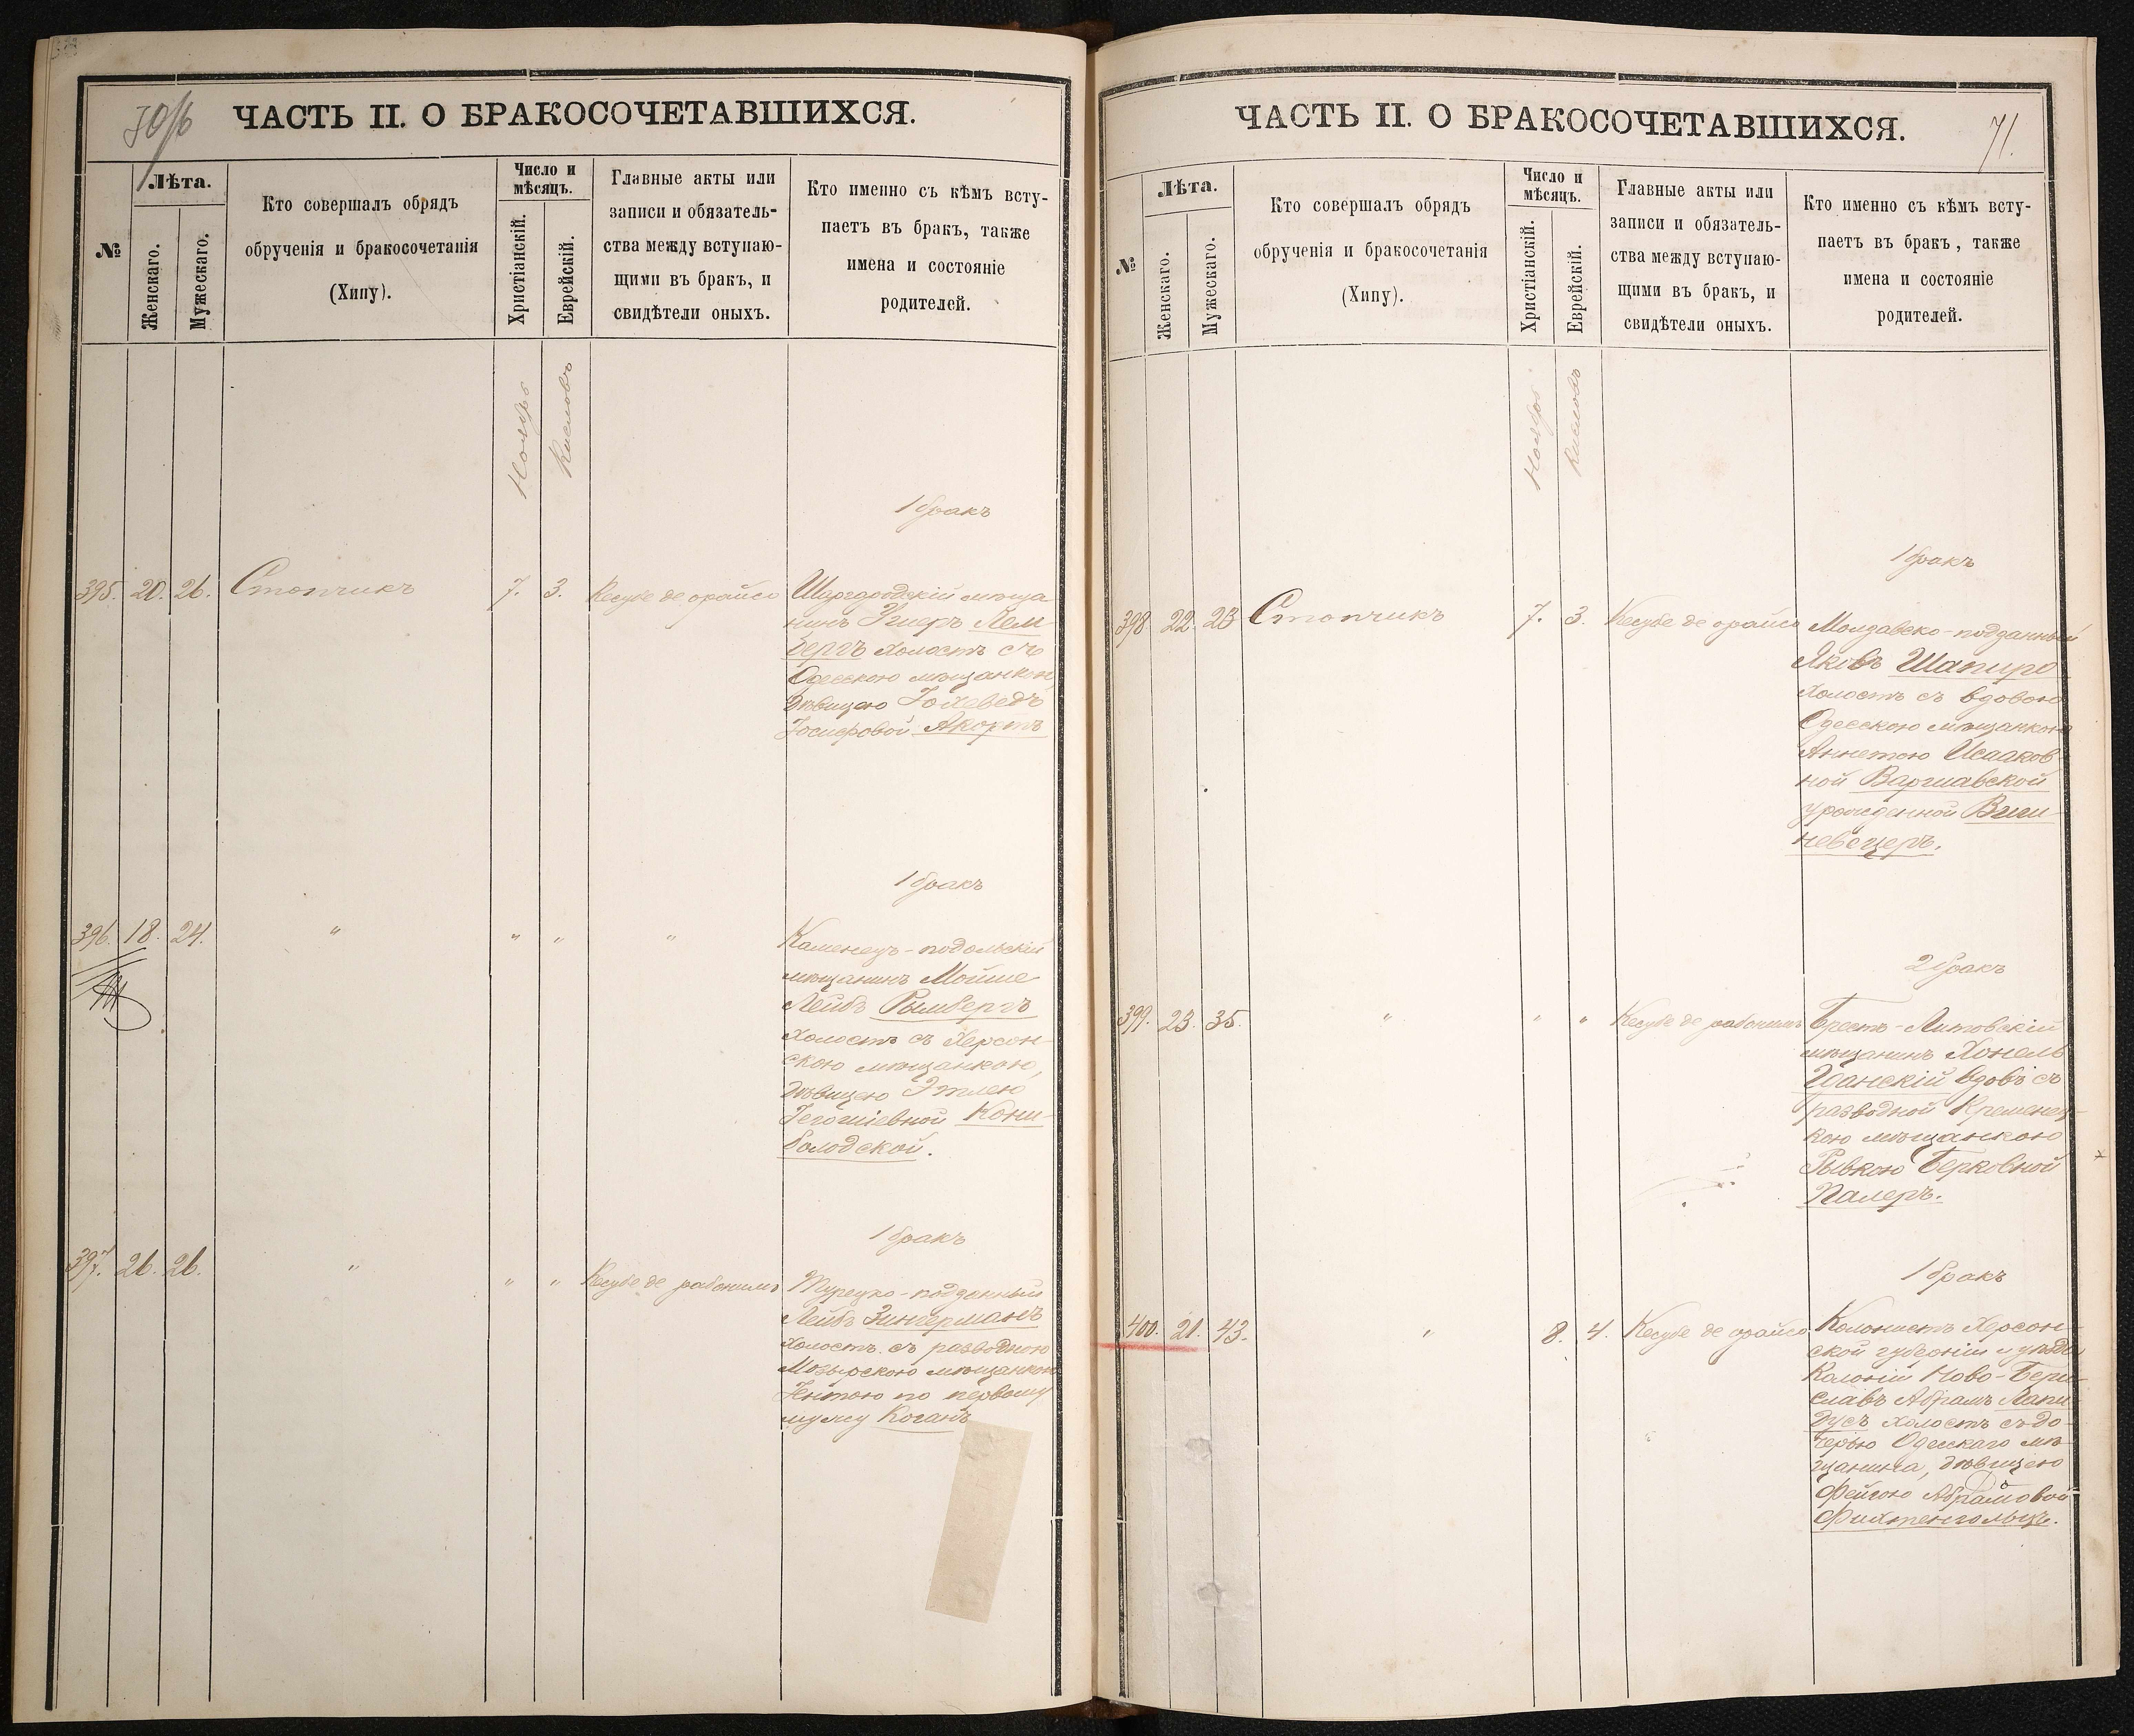 ЧАСТЬ II. О БРАКОСОЧЕТАВШИХСЯ.
№
Лѣта.
Женскаго.
Мужескаго.
Кто совершалъ обрядъ
обрученія и бракосочетанія
(Хипу).
Число и
мѣсяцъ.
Христіанскій.
Еврейскій.
Главные акты или
записи и обязатель-
ства между вступаю-
щими въ бракъ, и
свидѣтели оныхъ.
Кто именно съ кѣмъ всту-
паетъ въ бракъ, также
имена и состояніе
родителей.
Ноябрь
Кислевъ
1 бракъ
395. 20. 26. Стопчикъ 7. 3. Кесубе де орайсо
Шаргородскій мѣща
нинъ Ушеръ Лем-
бергъ холостъ съ
Одесскою мѣщанкою,
дѣвицею Іохеведъ
Іосифовой Акортъ
1 бракъ
396. 18. 24. " " " "
Каменецъ-подольскій
мѣщанинъ Мойше
Лейбъ Рымбергъ
холостъ съ Херсон-
скою мѣщанкою,
дѣвицею Этлею
Гегошіевной Кони-
болодской.
1 бракъ
397. 26. 26. " " " Кесубе де рабонимъ
Турецко-подданный
Лейбъ Зингерманъ
холостъ съ разводною
Мозырскою мѣщанкою
Іентою по первому
мужу Коганъ
ЧАСТЬ II. О БРАКОСОЧЕТАВШИХСЯ.
71.
№
Лѣта.
Женскаго.
Мужескаго.
Кто совершалъ обрядъ
обрученія и бракосочетанія
(Хипу).
Число и
мѣсяцъ.
Христіанскій.
Еврейскій.
Главные акты или
записи и обязатель-
ства между вступаю-
щими въ бракъ, и
свидѣтели оныхъ.
Кто именно съ кѣмъ всту-
паетъ въ бракъ, также
имена и состояніе
родителей.
Ноябрь
Кислевъ
1 бракъ
398. 22. 23 Стопчикъ 7. 3. Кесубе де орайсо
Молдавско-подданный
Яковъ Шапиро
холостъ съ вдовою
Одесскою мѣщанкою
Аннетою Исааков-
ной Варшавской
урожденной Виш-
невецеръ.
2 бракъ
399. 23. 35. " " " Кесубе де рабонимъ
Брестъ-Литовскій
мѣщанинъ Хонель
Гданскій вдовъ съ
разводной Кременец-
кою мѣщанкою
Рывкою Берковной
Палеръ.
1 бракъ
400. 21. 43. " 8. 4. Кесубе де орайсо
Колонистъ Херсон-
ской губерніи и уѣзда
Колоніи Ново-Бери-
славъ Абрамъ Лапи-
дусъ холостъ съ до-
черью Одесскаго мѣ-
щанина, дѣвицею
Фейгою Абрамовой
Фихтенгольцъ.